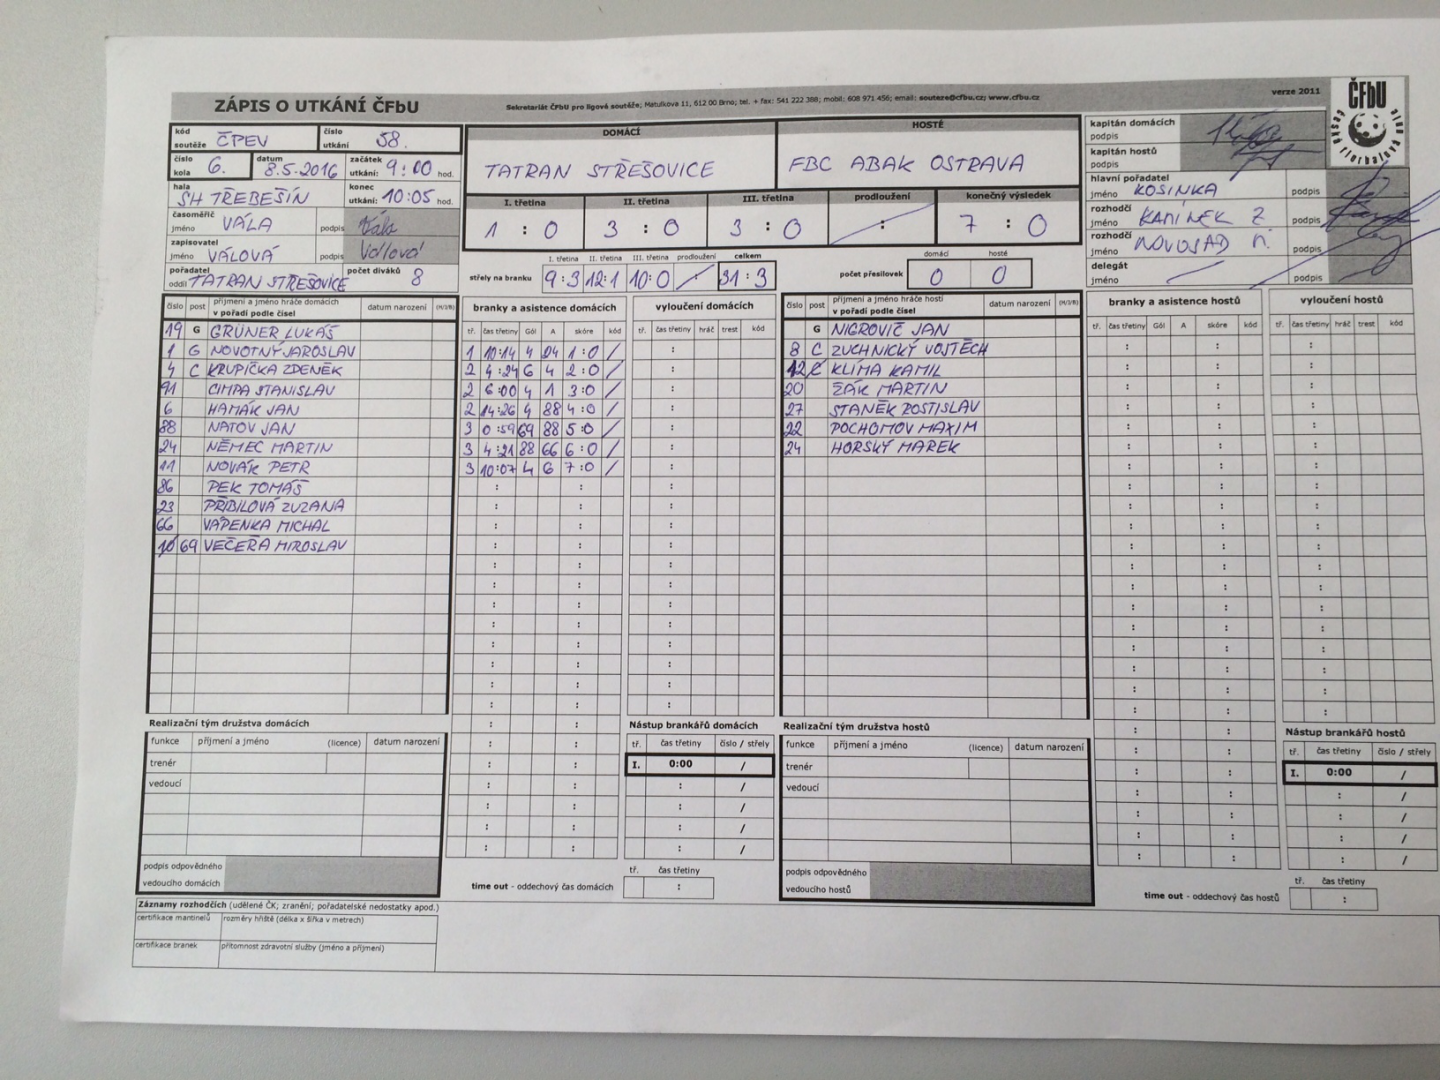 ZÁPIS O UTKÁNÍ ČFbU
Sekretariát ČFbU pro ligové soutěže; Matulkova 11, 612 00 Brno; tel. + fax: 541 222 388; mobil: 608 971 456; email: souteze@cfbu.cz; www.cfbu.cz
verze 2011
ČFbU
kód soutěže ČPEV
číslo utkání 58.
číslo kola 6.
datum 8.5.2016
začátek utkání: 9:00 hod.
hala SH TŘEBEŠÍN
konec utkání: 10:05 hod.
časoměřič jméno VÁLA podpis Vála
zapisovatel jméno VÁLOVÁ podpis Vállová
pořadatel oddíl TATRAN STŘEŠOVICE
počet diváků 8
DOMÁCÍ
TATRAN STŘEŠOVICE
HOSTÉ
FBC ABAK OSTRAVA
I. třetina II. třetina III. třetina prodloužení konečný výsledek
1 : 0 3 : 0 3 : 0 : 7 : 0
I. třetina II. třetina III. třetina prodloužení celkem
střely na branku 9:3 12:1 10:0 / 31:3
domácí hosté
počet přesilovek 0 0
kapitán domácích podpis
kapitán hostů podpis
hlavní pořadatel jméno KOSINKA podpis
rozhodčí jméno KAMÍNEK Z. podpis
rozhodčí jméno NOVOSAD M.
delegát jméno podpis
číslo post příjmení a jméno hráče domácích v pořadí podle čísel datum narození (M/J/B)
19 G GRÜNER LUKÁŠ
1 G NOVOTNÝ JAROSLAV
4 C KRUPIČKA ZDENĚK
91 CIMPA STANISLAV
6 HAMÁK JAN
88 NATOV JAN
24 NĚMEC MARTIN
11 NOVÁK PETR
86 PEK TOMÁŠ
23 PŘIBILOVÁ ZUZANA
66 VÁPENKA MICHAL
10 69 VEČEŘA MIROSLAV
branky a asistence domácích
tř. čas třetiny Gól A skóre kód
1 10:14 4 24 1:0 /
2 4:24 6 4 2:0 /
2 6:00 4 1 3:0 /
2 14:26 4 88 4:0 /
3 0:59 69 88 5:0 /
3 4:21 88 66 6:0 /
3 10:07 4 6 7:0 /
vyloučení domácích
tř. čas třetiny hráč trest kód
číslo post příjmení a jméno hráče hostí v pořadí podle čísel datum narození (M/J/B)
G NIGROVIČ JAN
8 C ZUCHNICKÝ VOJTĚCH
12 C KLÍMA KAMIL
20 ŽÁK MARTIN
27 STANĚK ROSTISLAV
22 POCHOMOV MAXIM
24 HORSKÝ MAREK
branky a asistence hostů
tř. čas třetiny Gól A skóre kód
vyloučení hostů
tř. čas třetiny hráč trest kód
Realizační tým družstva domácích
funkce příjmení a jméno (licence) datum narození
trenér
vedoucí
podpis odpovědného vedoucího domácích
Nástup brankářů domácích
tř. čas třetiny číslo / střely
I. 0:00 /
tř. čas třetiny
time out - oddechový čas domácích :
Realizační tým družstva hostů
funkce příjmení a jméno (licence) datum narození
trenér
vedoucí
podpis odpovědného vedoucího hostů
Nástup brankářů hostů
tř. čas třetiny číslo / střely
I. 0:00 /
tř. čas třetiny
time out - oddechový čas hostů :
Záznamy rozhodčích (udělené ČK; zranění; pořadatelské nedostatky apod.)
certifikace mantinelů rozměry hřiště (délka x šířka v metrech)
certifikace branek přítomnost zdravotní služby (jméno a příjmení)